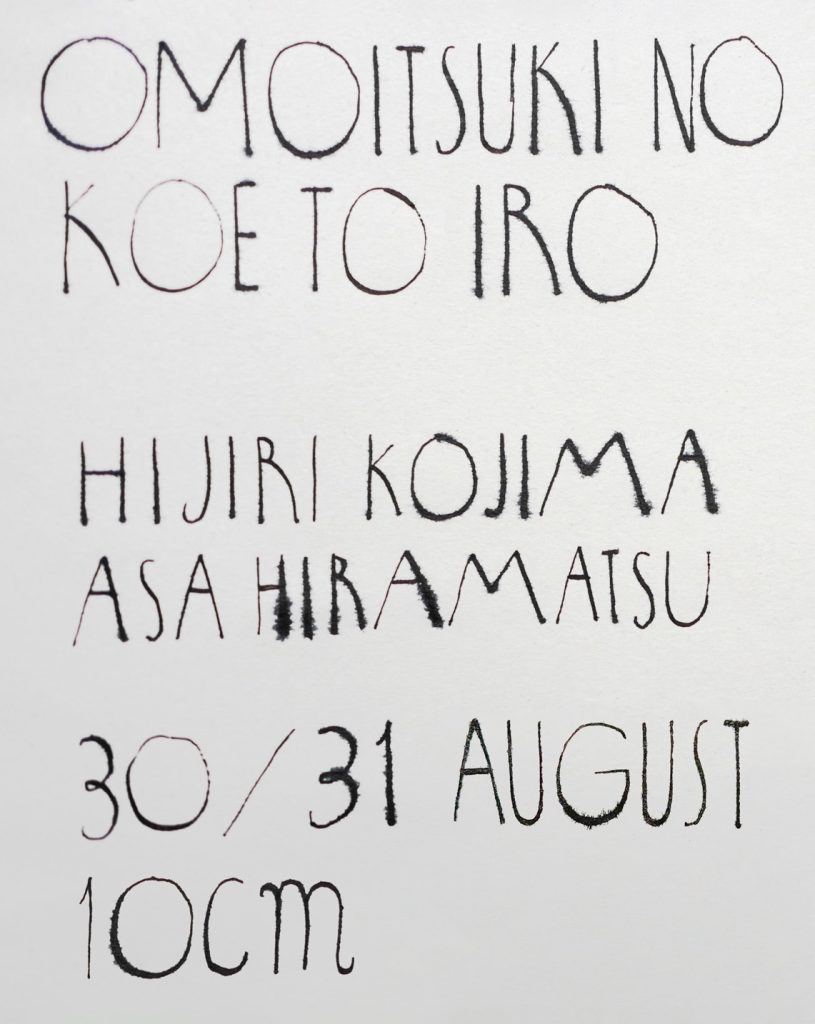 OMOITSUKI NO
KOE TO IRO
HIJIRI KOJIMA
ASA HIRAMATSU
30/31 AUGUST
10cm